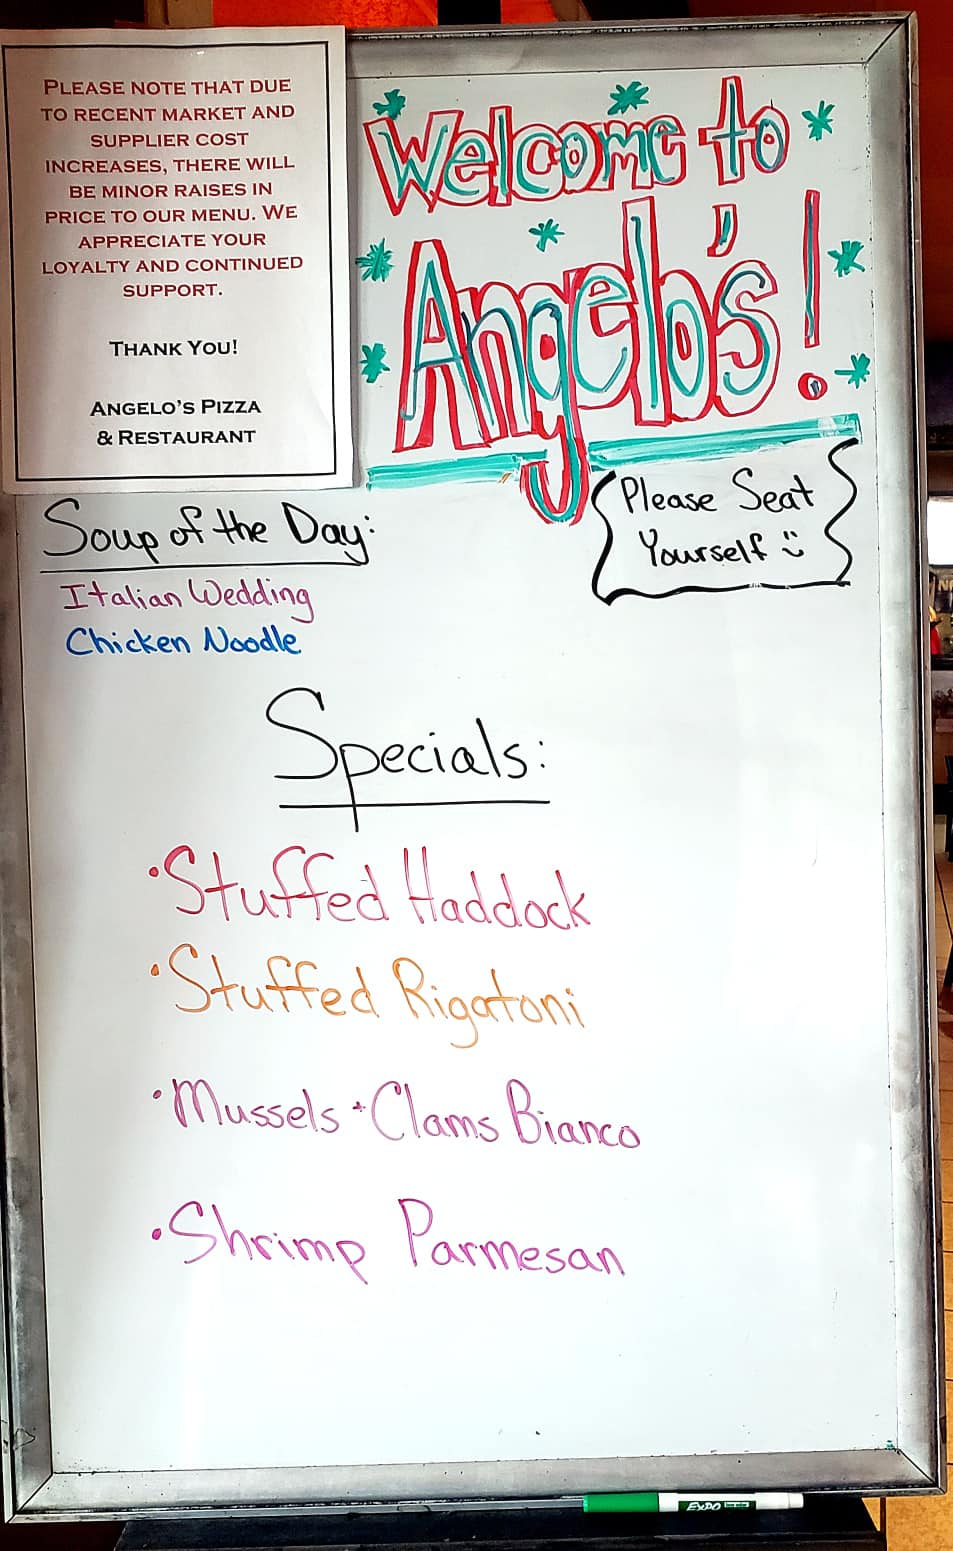 PLEASE NOTE THAT DUE
TO RECENT MARKET AND
SUPPLIER COST
INCREASES, THERE WILL
BE MINOR RAISES IN
PRICE TO OUR MENU. WE
APPRECIATE YOUR
LOYALTY AND CONTINUED
SUPPORT.
THANK YOU!
ANGELO'S PIZZA
& RESTAURANT
Welcome to
Angelo's!
Please Seat
Yourself
Soup of the Day:
Italian Wedding
Chicken Noodle
Specials:
•Stuffed Haddock
•Stuffed Rigatoni
•Mussels + Clams Bianco
•Shrimp Parmesan
EXPO